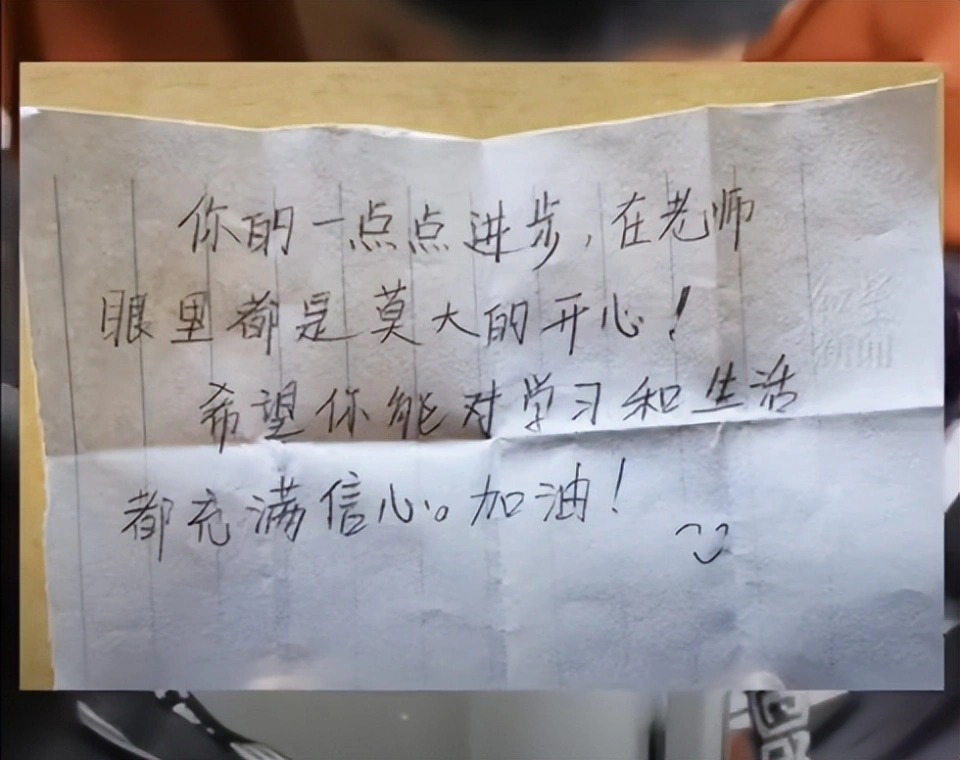 你的一点点进步,在老师
眼里都是莫大的开心!
希望你能对学习和生活
都充满信心。加油!